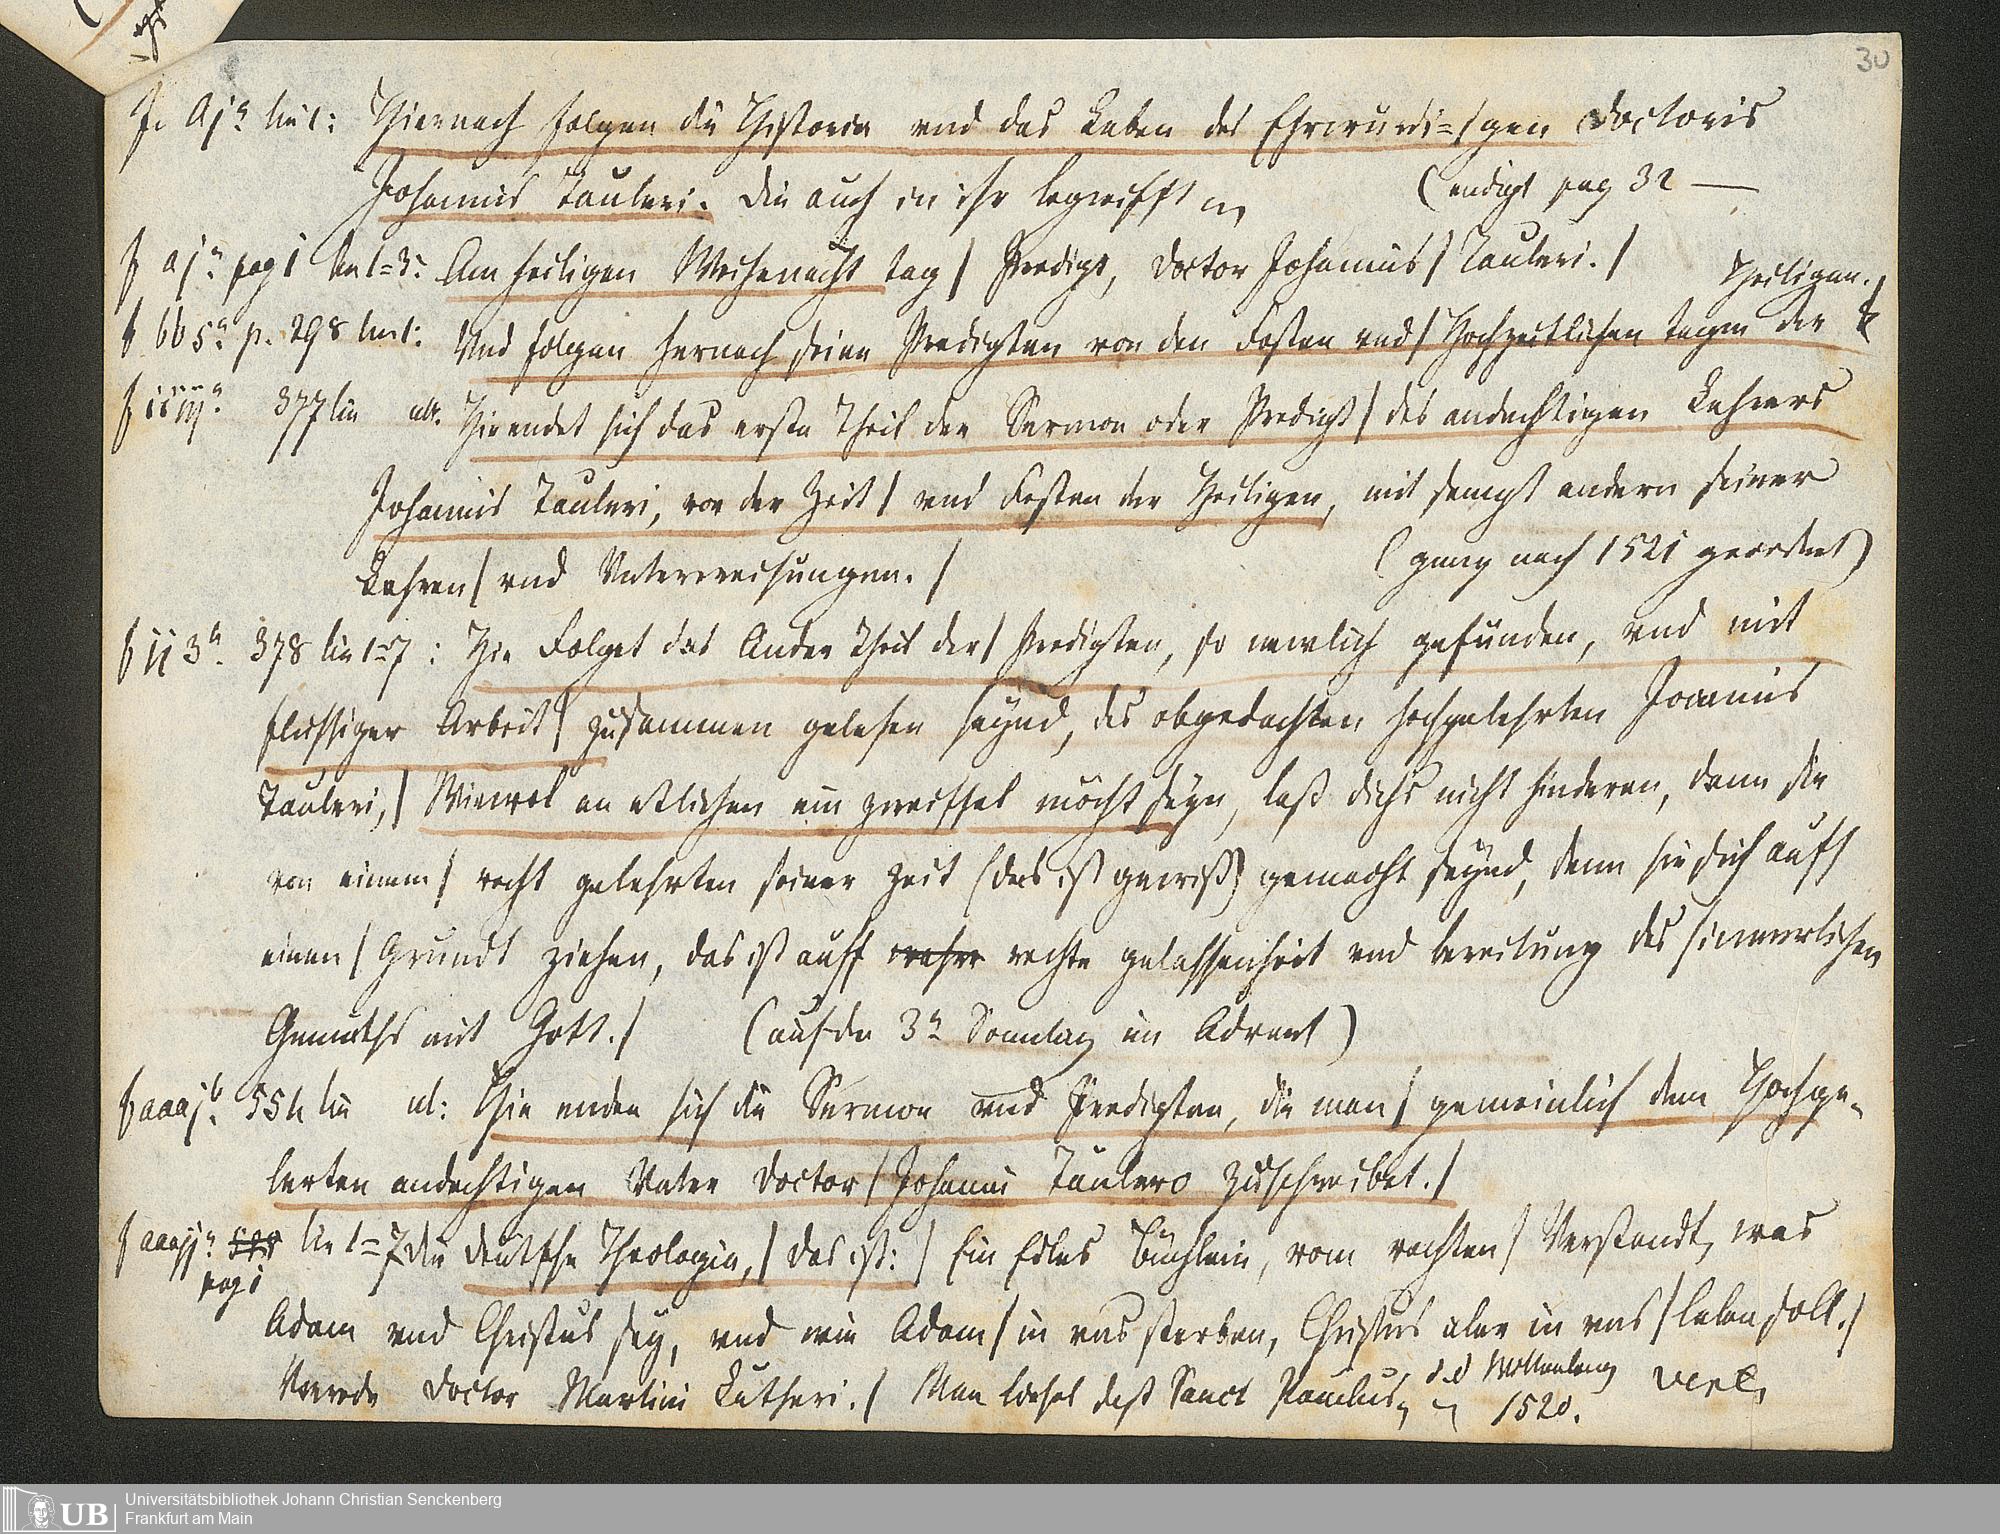 30
f. Aj a lin 1: Hiernach folgen die Historia vnd das Leben des Ehrwurdi=/gen Doctoris
Johannis Tauleri. Die auch in ihr begreifft
(endigt pag 32 —
f aj a pag 1 lin 1=3: Am heiligen Weihenacht tag / Predigt, Doctor Johannis / Tauleri. /
Heiligen. /
f bb 5 a p. 298 lin 1: Vnd folgen hernach seine Predigten von den Festen vnd / Hochzeitlichen tagen der
377 lin ult. Hie endet sich das erste Theil der Sermon oder Predigt / des andechtigen Lehrers
Johannis Tauleri, von der Zeit / vnd Festen der Heiligen, mit sampt andern seiner
Lehren / vnd Vnterweisungen. /
(ganz nach 1521 geordnet)
f ii 3 a. 378 lin 1=7: Hie Folget das Ander Theil der / Predigten, so newlich gefunden, vnd mit
fleissiger Arbeit / zusammen gelesen seynd, des obgedachten hochgelehrten Joannis
Tauleri, / Wiewol an etlichen ein zweiffel möcht seyn, laß dichs nicht hinderen, dann sie
von einem / recht gelehrten seiner Zeit (das ist gewiß) gemacht seynd, denn sie sich auff
einen / Grundt ziehen, das ist auff rechte gelassenheit vnd bereitung des / innerlichen
Gemuths mit Gott. / (auf den 3n Sonntag im Advent)
f aaaj b. lin ul: Hie enden sich die Sermon vnd Predigten, die man / gemeinlich dem Hochge-
lerten andechtigen Vater Doctor / Johanni Taulero zuschreibet. /
lin 1=7 Die deutsche Theologia, / das ist: / Ein Edles Büchlein, vom rechten / Verstandt, was
pag 1
Adam vnd Christus sey, vnd wie Adam / in vns sterben, Christus aber in vns / leben soll. /
Vorrede Doctor Martini Lutheri. / Man lieset dass Sanct Paulus
1520.
Universitätsbibliothek Johann Christian Senckenberg
UB Frankfurt am Main